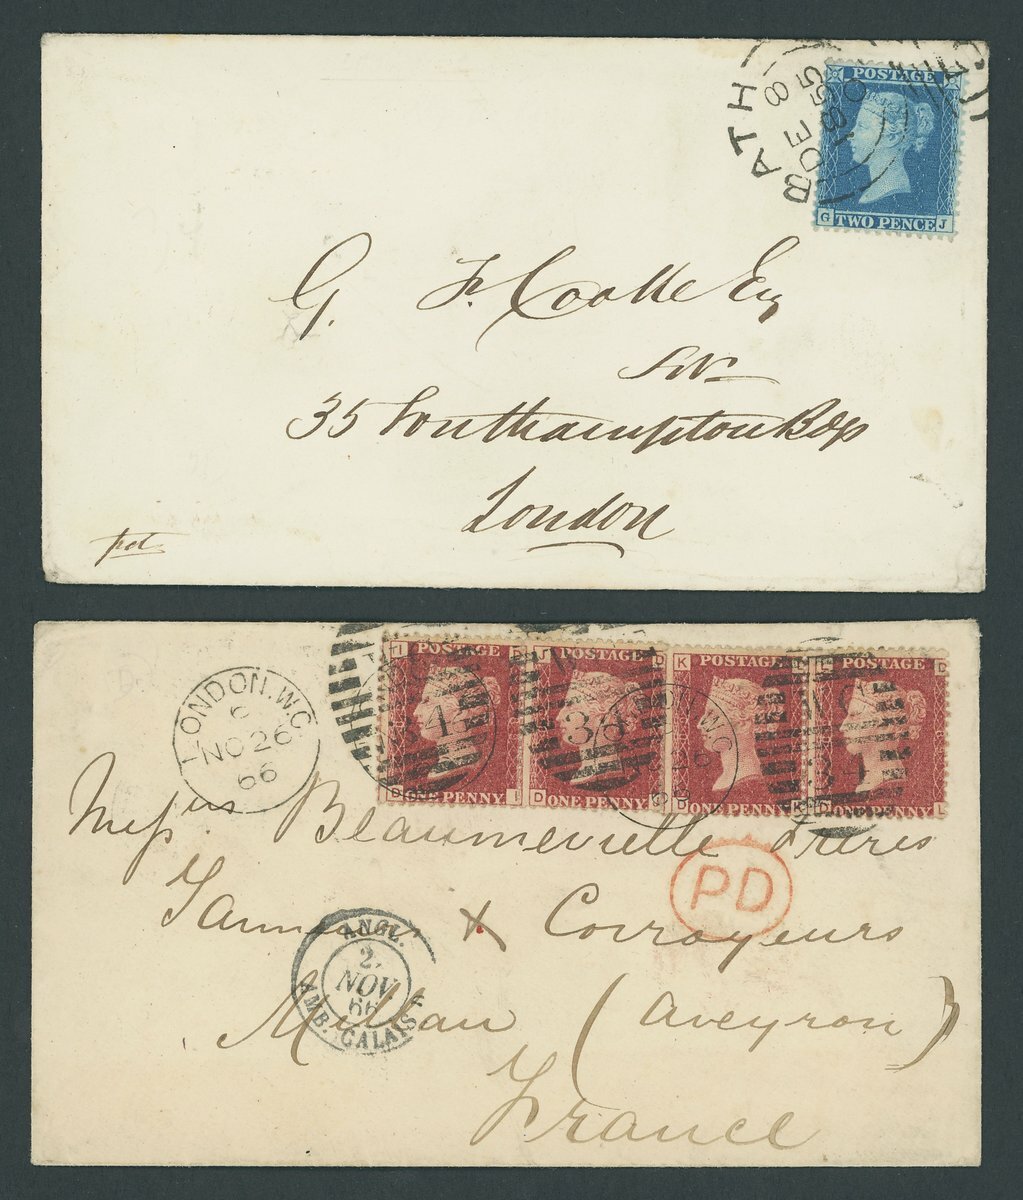 BATH
DE 8
1855
POSTAGE
G TWO PENCE J
G. F. Cooke Esq
35 Southampton Bdgs
London
LONDON.W.C
6
NO 26
66
POSTAGE
D ONE PENNY I
POSTAGE D
D ONE PENNY
K POSTAGE
D ONE PENNY K
POSTAGE D
ONE PENNY L
Messrs Beaumevieille Frères
PD
Tanneurs & Corroyeurs
ANGL.
2
NOV
66
AMB. CALAIS
Millau (Aveyron)
France